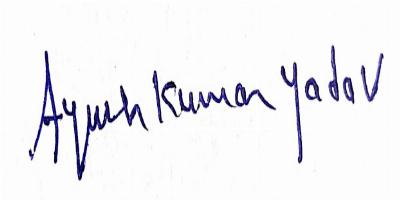 Ayush Kumar Yadav